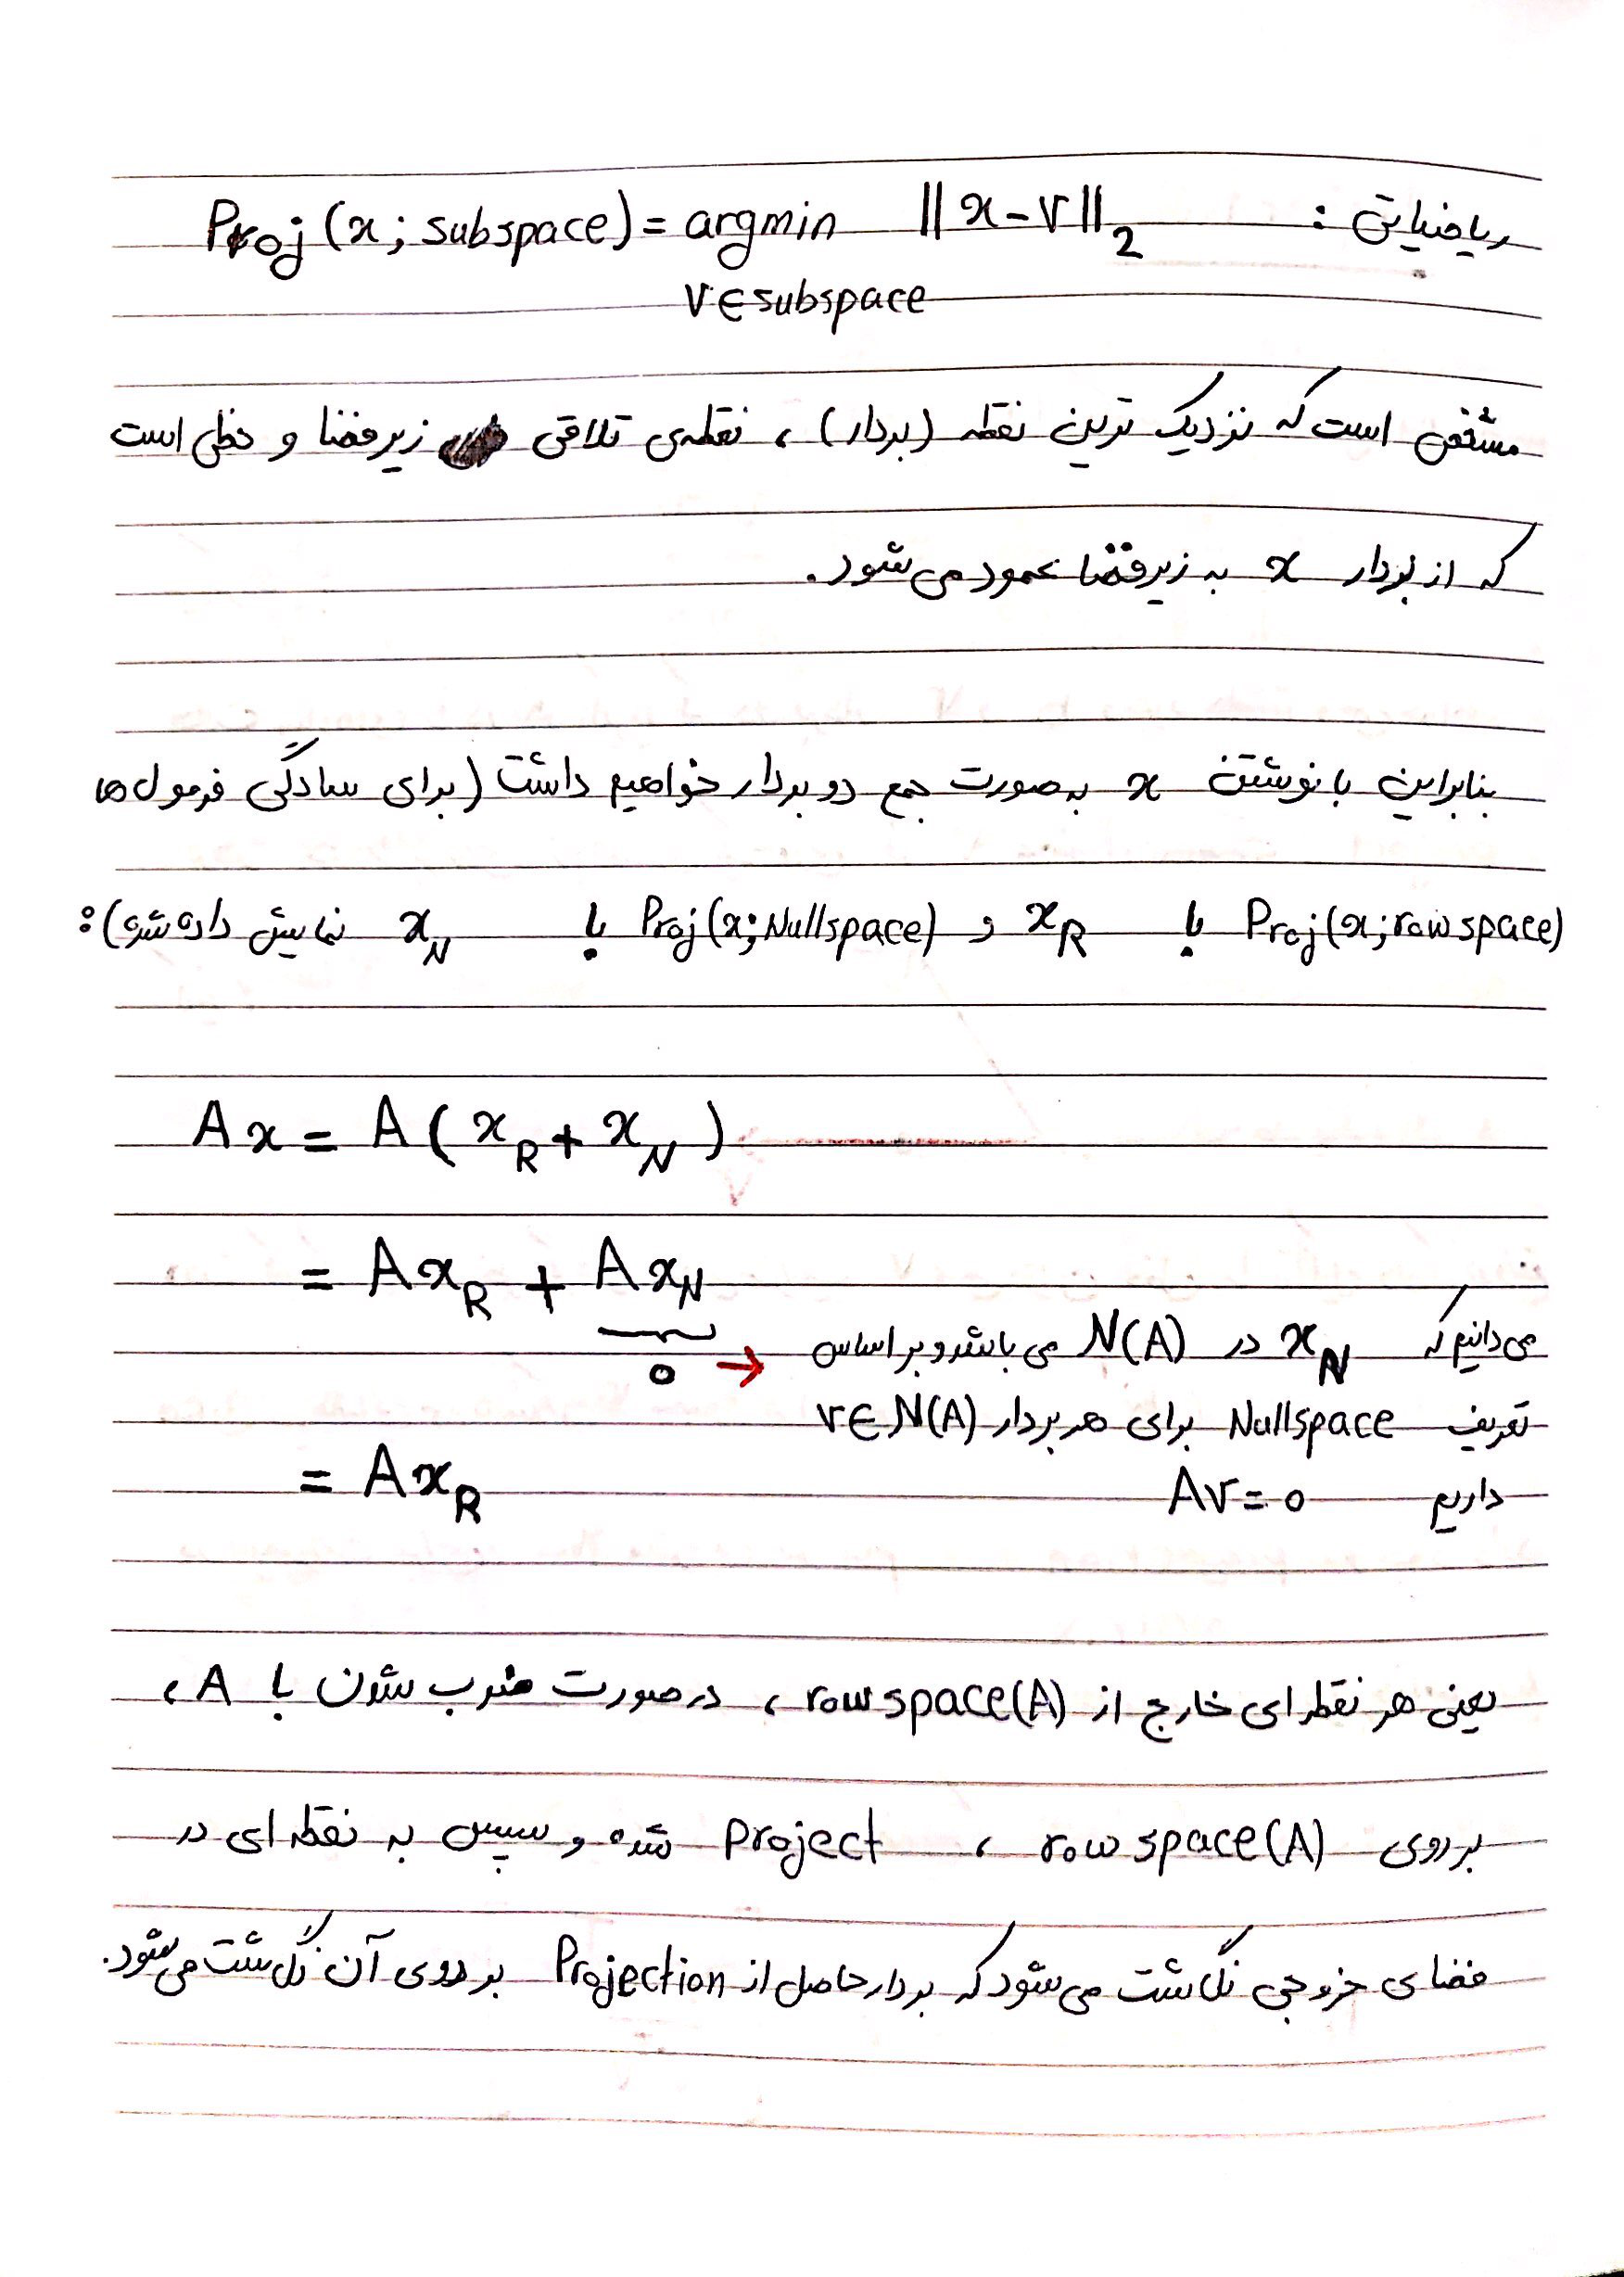 ریاضیاتی : Proj(x; subspace) = argmin ||x - v||₂
v∈subspace
مشخص است که نزدیک ترین نقطه (بردار) ، نقطه‌ی تلاقی زیرفضا و خطی است
که از بردار x به زیرفضا عمود می شود.
بنابراین با نوشتن x به صورت جمع دو بردار خواهیم داشت (برای سادگی فرمول ها
Proj(x; rowspace) با x_R و Proj(x; Nullspace) با x_N نمایش داده شده):
Ax = A(x_R + x_N)
= Ax_R + Ax_N
0 → می دانیم که x_N در N(A) می باشد و بر اساس
تعریف Nullspace برای هر بردار v∈N(A)
داریم Av = 0
= Ax_R
یعنی هر نقطه ای خارج از rowspace(A) ، در صورت ضرب شدن با A ،
بر روی rowspace(A) ، project شده و سپس به نقطه ای در
فضای خروجی نگاشت می شود که بردار حاصل از Projection بر روی آن نگاشت می شود.